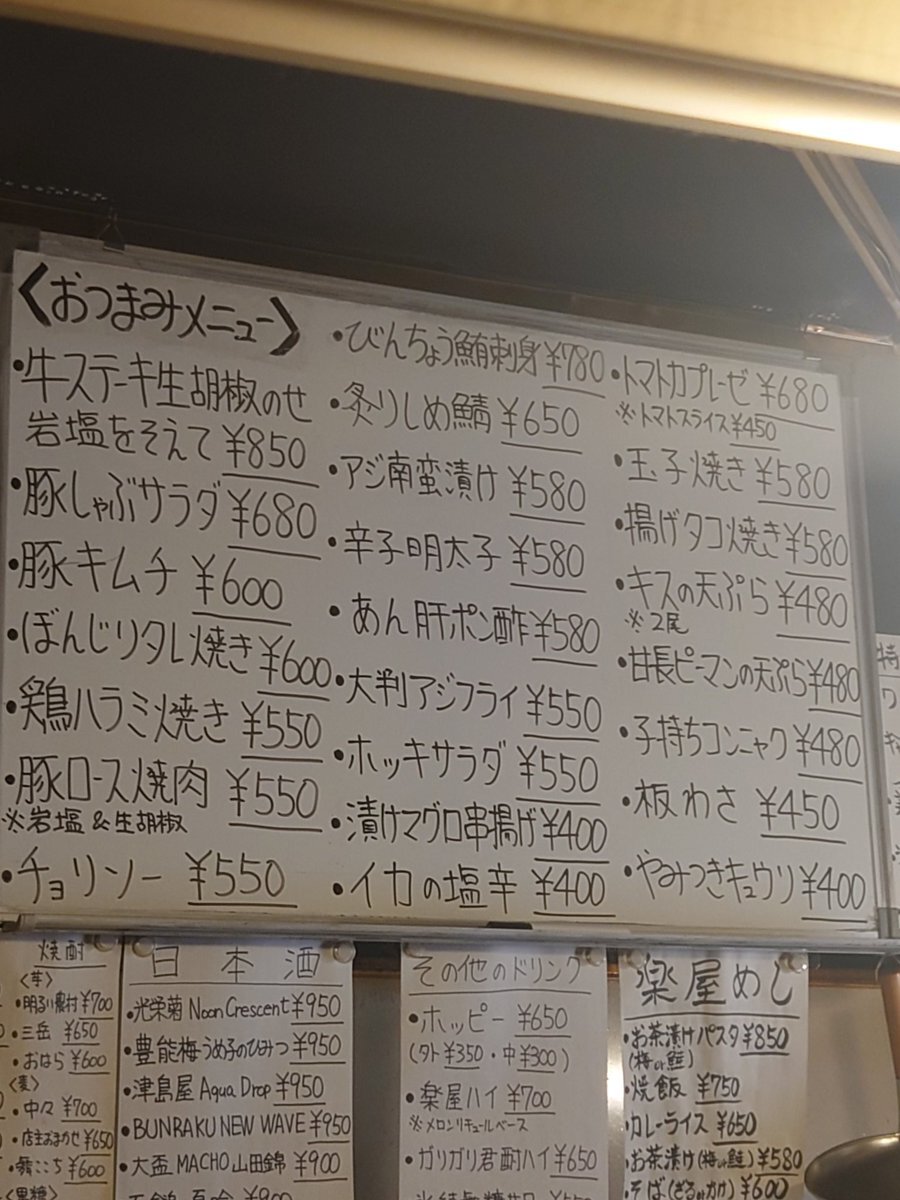 〈おつまみメニュー〉
・牛ステーキ生胡椒のせ
岩塩をそえて ¥850
・豚しゃぶサラダ ¥680
・豚キムチ ¥600
・ぼんじりタレ焼き ¥600
・鶏ハラミ焼き ¥550
・豚ロース焼肉 ¥550
※岩塩&生胡椒
・チョリソー ¥550
・びんちょう鮪刺身 ¥780
・炙りしめ鯖 ¥650
・アジ南蛮漬け ¥580
・辛子明太子 ¥580
・あん肝ポン酢 ¥580
・大判アジフライ ¥550
・ホッキサラダ ¥550
・漬けマグロ串揚げ ¥400
・イカの塩辛 ¥400
・トマトカプレーゼ ¥680
※トマトスライス ¥450
・玉子焼き ¥580
・揚げタコ焼き ¥580
・キスの天ぷら ¥480
※2尾
・甘長ピーマンの天ぷら ¥480
・子持ちコンニャク ¥480
・板わさ ¥450
・やみつきキュウリ ¥400
焼酎
〈芋〉
・明るい農村 ¥700
・三岳 ¥650
・おはら ¥600
〈麦〉
・中々 ¥700
・店主おまかせ ¥650
・舞ここち ¥600
〈黒糖〉
日本酒
・光栄菊 Noon Crescent ¥950
・豊能梅 うめ子のひみつ ¥950
・津島屋 Aqua Drop ¥950
・BUNRAKU NEW WAVE ¥950
・大盃 MACHO 山田錦 ¥900
その他のドリンク
・ホッピー ¥650
(タト ¥350・中 ¥300)
・楽屋ハイ ¥700
※メロンリキュールベース
・ガリガリ君酎ハイ ¥650
楽屋めし
・お茶漬けパスタ ¥850
(梅or鮭)
・焼飯 ¥750
・カレーライス ¥650
・お茶漬け(梅or鮭) ¥580
・そば(ざるorかけ) ¥600